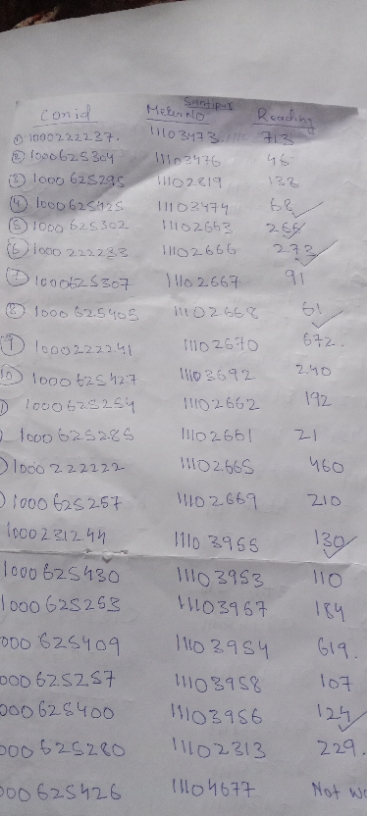 Santipur
Conid Meter No Reading
① 1000222237. 11103473 713
② 1000625304 11103476 46
③ 1000625295 11102819 138
④ 1000625425 11103474 68 ✓
⑤ 1000625302 11102663 266 ✓
⑥ 1000222233 11102666 273 ✓
⑦ 1000625307 11102667 91
⑧ 1000625405 11102668 61 ✓
⑨ 1000222241 11102670 672.
⑩ 1000625427 11103692 240
1000625254 11102662 192
1000625285 11102661 21
1000222222 11102665 460
1000625257 11102669 210
1000231244 11103955 130 ✓
1000625430 11103953 110
1000625253 11103957 184
000625409 11103954 619.
000625257 11103958 107
000625400 11103956 124 ✓
000625280 11102313 229.
000625426 11104677 Not